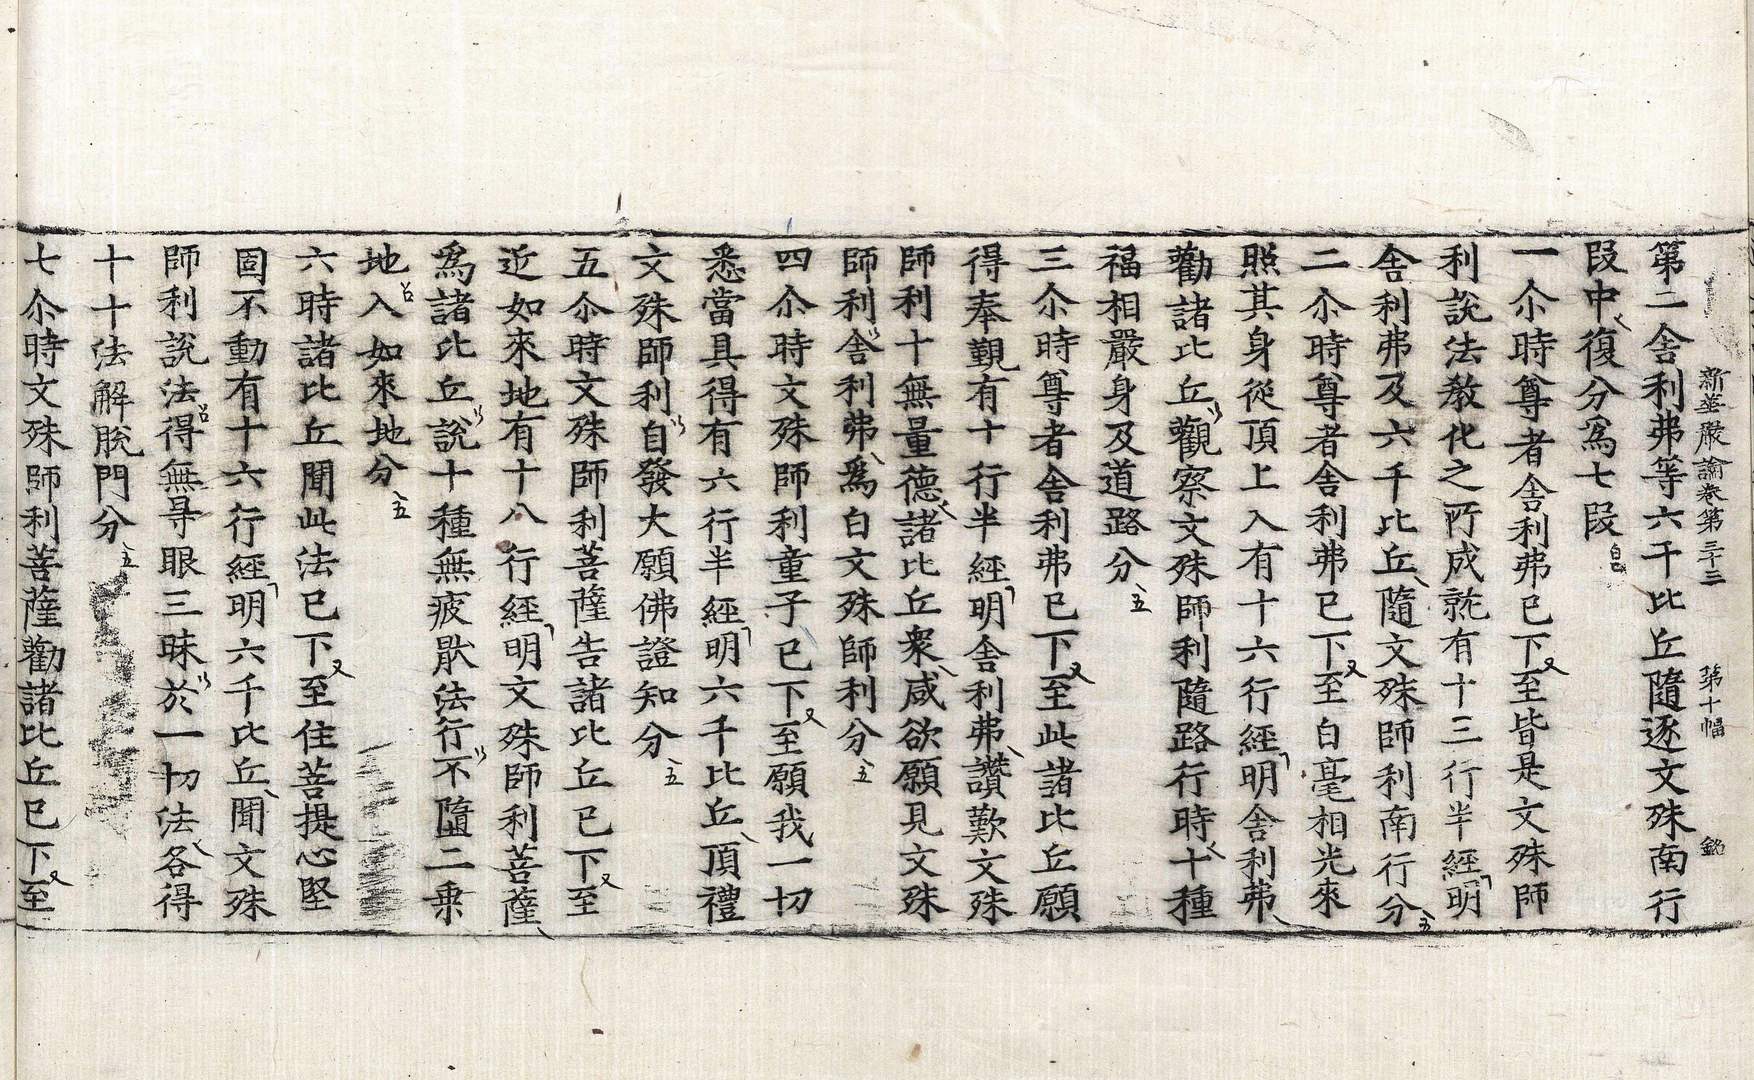 新華嚴論卷第三十三　第十幅　銘
第二舎利弗等六千比丘隨逐文殊南行
段中復分爲七段
一尒時尊者舎利弗已下至皆是文殊師
利說法教化之所成就有十三行半經明
舎利弗及六千比丘隨文殊師利南行分
二尒時尊者舎利弗已下至白毫相光來
照其身從頂上入有十六行經明舎利弗
勸諸比丘觀察文殊師利隨路行時十種
福相嚴身及道路分
三尒時尊者舎利弗已下至此諸比丘願
得奉覲有十行半經明舎利弗讚歎文殊
師利十無量德諸比丘衆咸欲願見文殊
師利舎利弗爲白文殊師利分
四尒時文殊師利童子已下至願我一切
悉當具得有六行半經明六千比丘頂禮
文殊師利自發大願佛證知分
五尒時文殊師利菩薩告諸比丘已下至
近如來地有十八行經明文殊師利菩薩
爲諸比丘說十種無疲猒法行不隨二乗
地入如來地分
六時諸比丘聞此法已下至住菩提心堅
固不動有十六行經明六千比丘聞文殊
師利說法得無㝵眼三昧於一切法各得
十十法解脫門分
七尒時文殊師利菩薩勸諸比丘已下至